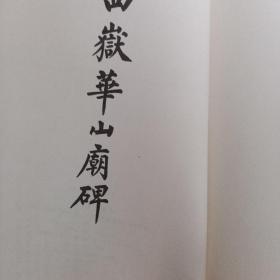 西嶽華山廟碑